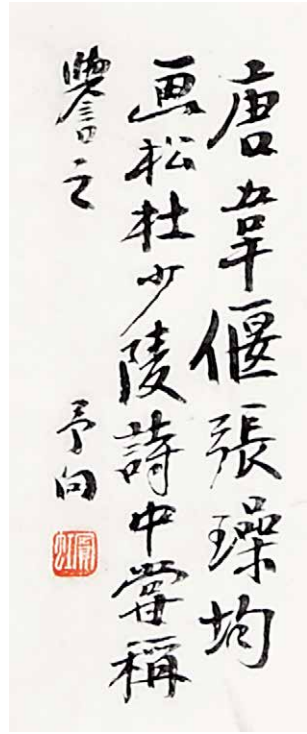 唐韋偃張璪均
画松杜少陵詩中嘗稱
譽之
予向
賓虹